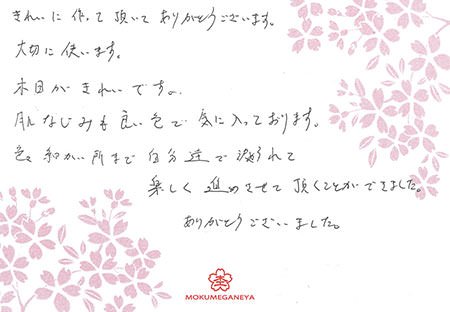 きれいに作って頂いてありがとうございます。
大切に使います。
木目がきれいです。
肌なじみも良い色で気に入っております。
色々細かい所まで自分達で決められて
楽しく進めさせて頂くことができました。
ありがとうございました。
MOKUMEGANEYA